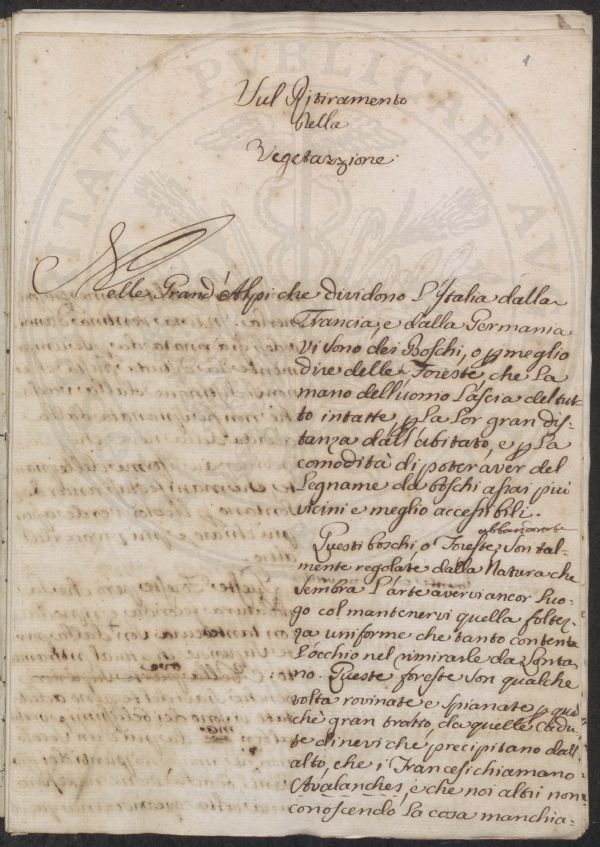 1
Sul Ritiramento
della
Vegetazzione
Nelle Grand' Alpi che dividono l'Italia dalla
Francia, e dalla Germania
vi sono dei Boschi, o p meglio
dire delle Foreste che la
mano dell'uomo lascia del tut-
to intatte, p la lor gran dis-
tanza dall'abitato, e p la
comodità di poter aver del
legname da boschi assai più
vicini e meglio accessibili.
abbandonate
Questi boschi, o Foreste son tal-
mente regolate dalla Natura che
sembra l'arte avervi ancor luo-
go col mantenervi quella foltez-
za uniforme che tanto contenta
l'occhio nel rimirarle da lonta-
no. Queste foreste son qualche
volta rovinate e spianate p qual
che gran tratto, da quelle cadu-
te di nevi che precipitano dall'
alto, che i Francesi chiamano
Avalanches, e che noi altri non
conoscendo la cosa manchia-